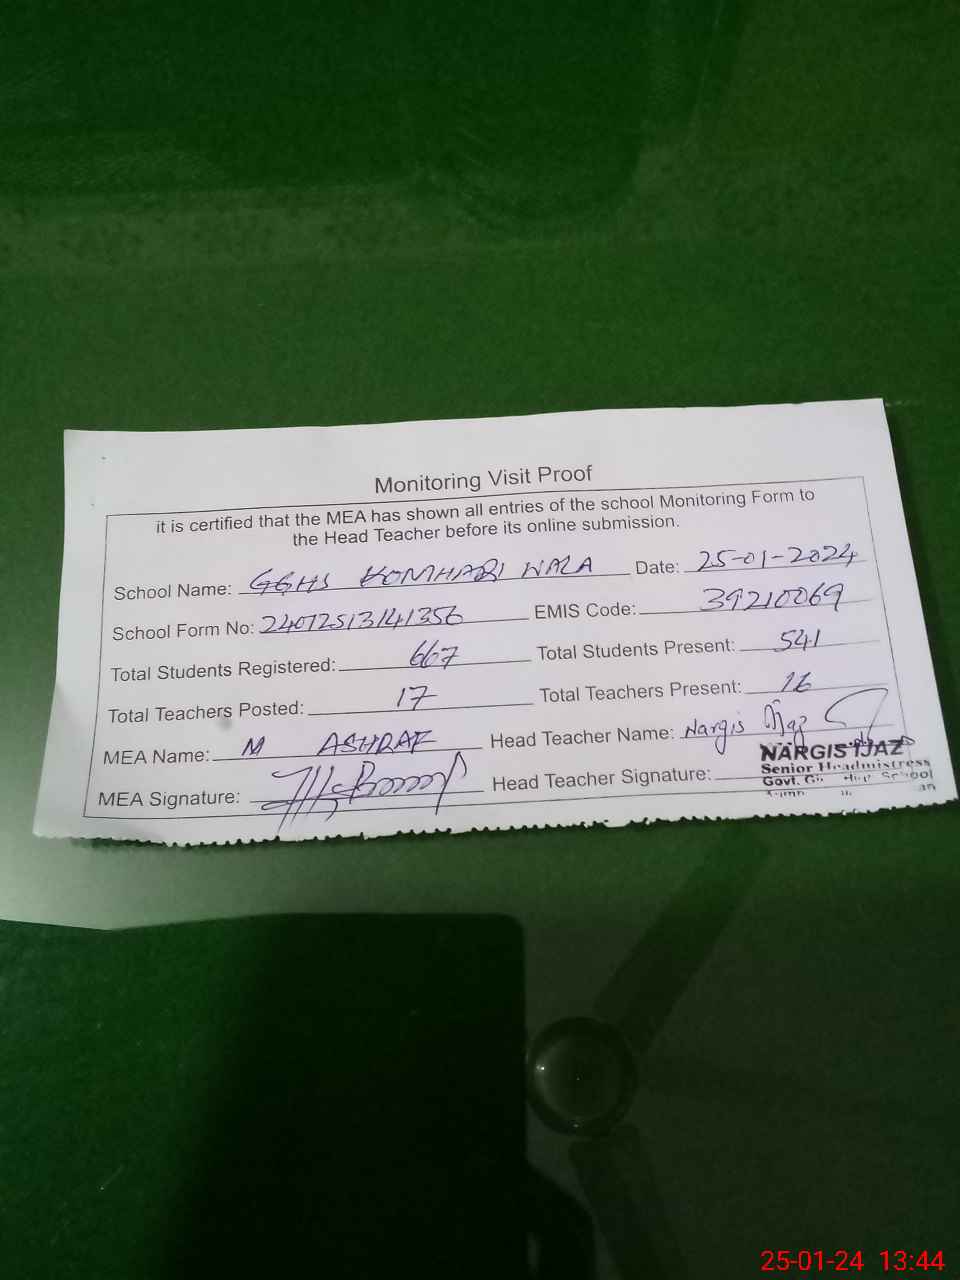 Monitoring Visit Proof
it is certified that the MEA has shown all entries of the school Monitoring Form to
the Head Teacher before its online submission.
School Name: GGHS KOMHARI WALA Date: 25-01-2024
School Form No: 24012513141356 EMIS Code: 39210069
Total Students Registered: 667 Total Students Present: 541
Total Teachers Posted: 17 Total Teachers Present: 16
MEA Name: M ASHRAF Head Teacher Name: Nargis Ijaz
MEA Signature: Head Teacher Signature:
NARGIS IJAZ
Senior Headmistress
Govt. School
25-01-24 13:44